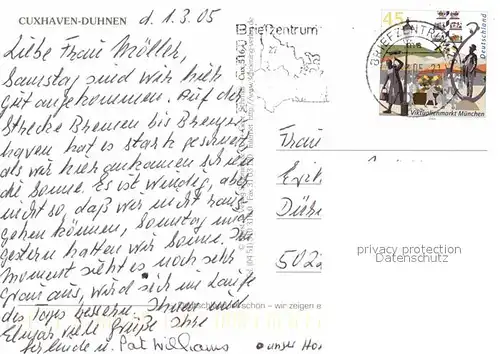 CUXHAVEN-DUHNEN
d. 1.3.05
Liebe Frau Möller,
Samstag sind wir hier
gut angekommen. Auf der
Strecke Bremen bis Bremer-
haven hat es stark geschneit
als wir hier ankamen schien
die Sonne. Es ist windig, aber
nicht so, daß wir nicht raus-
gehen können, Sonntag und
gestern hatten wir Sonne. Im
Moment sieht es noch sehr
Grau aus, wird sich im Laufe
des Tages bessern. Ihnen und
Elmar viele Grüße Ihre
u. Pat Williams
Briefzentrum
BRIEFZENTRUM
45
Deutschland
Viktualienmarkt München
Frau
502
privacy protection
Datenschutz
schön – wir zeigen e
unser